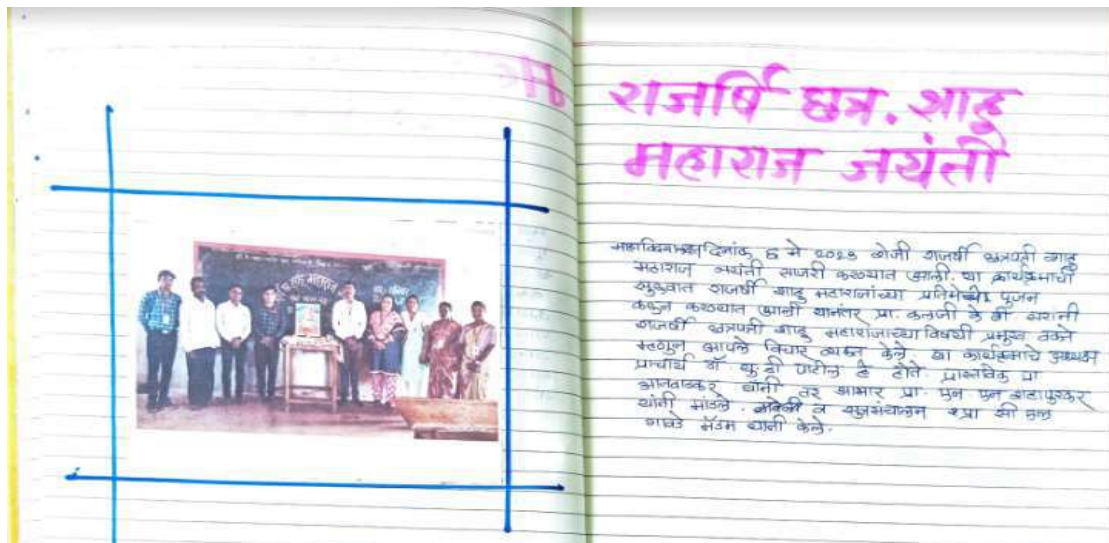 राजर्षि छत्र. शाहु
महाराज जयंती
दिनांक 6 मे 2023 रोजी राजर्षी छत्रपती शाहु
महाराज जयंती साजरी करण्यात आली. या कार्यक्रमाची
सुरुवात राजर्षी शाहु महाराजांच्या प्रतिमेचे पूजन
करून करण्यात आली यानंतर प्रा. के बी सरांनी
राजर्षी छत्रपती शाहु महाराजांच्या विषयी प्रमुख वक्ते
म्हणून आपले विचार व्यक्त केले. या कार्यक्रमाचे अध्यक्ष
प्राचार्य डॉ. डी पाटील हे होते. प्रास्ताविक प्रा
यांनी तर आभार प्रा. एन एन शहापुरकर
यांनी मांडले. व सुत्रसंचालन प्रा सौ
मॅडम यांनी केले.